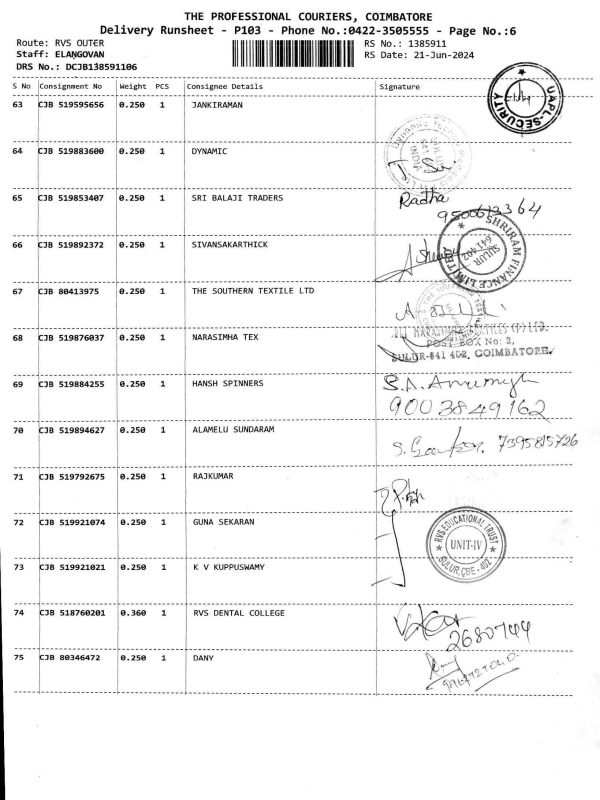 THE PROFESSIONAL COURIERS, COIMBATORE
Delivery Runsheet - P103 - Phone No.:0422-3505555 - Page No.:6
Route: RVS OUTER RS No.: 1385911
Staff: ELANGOVAN RS Date: 21-Jun-2024
DRS No.: DCJB138591106
S No Consignment No Weight PCS Consignee Details Signature
UAPL-SECURITY
63 CJB 519595656 0.250 1 JANKIRAMAN
64 CJB 519883600 0.250 1 DYNAMIC
65 CJB 519853407 0.250 1 SRI BALAJI TRADERS Radha
66 CJB 519892372 0.250 1 SIVANSAKARTHICK
SHRIRAM FINANCE LIMITED
SULUR
641 402
67 CJB 80413975 0.250 1 THE SOUTHERN TEXTILE LTD
68 CJB 519876037 0.250 1 NARASIMHA TEX
POST BOX No: 2,
SULUR-641 402, COIMBATORE.
69 CJB 519884255 0.250 1 HANSH SPINNERS
9003849162
70 CJB 519894627 0.250 1 ALAMELU SUNDARAM 7395815726
71 CJB 519792675 0.250 1 RAJKUMAR
72 CJB 519921074 0.250 1 GUNA SEKARAN
RVS.EDUCATIONAL TRUST
UNIT-IV
SULUR,CBE - 402
73 CJB 519921021 0.250 1 K V KUPPUSWAMY
74 CJB 518760201 0.360 1 RVS DENTAL COLLEGE
2680744
75 CJB 80346472 0.250 1 DANY